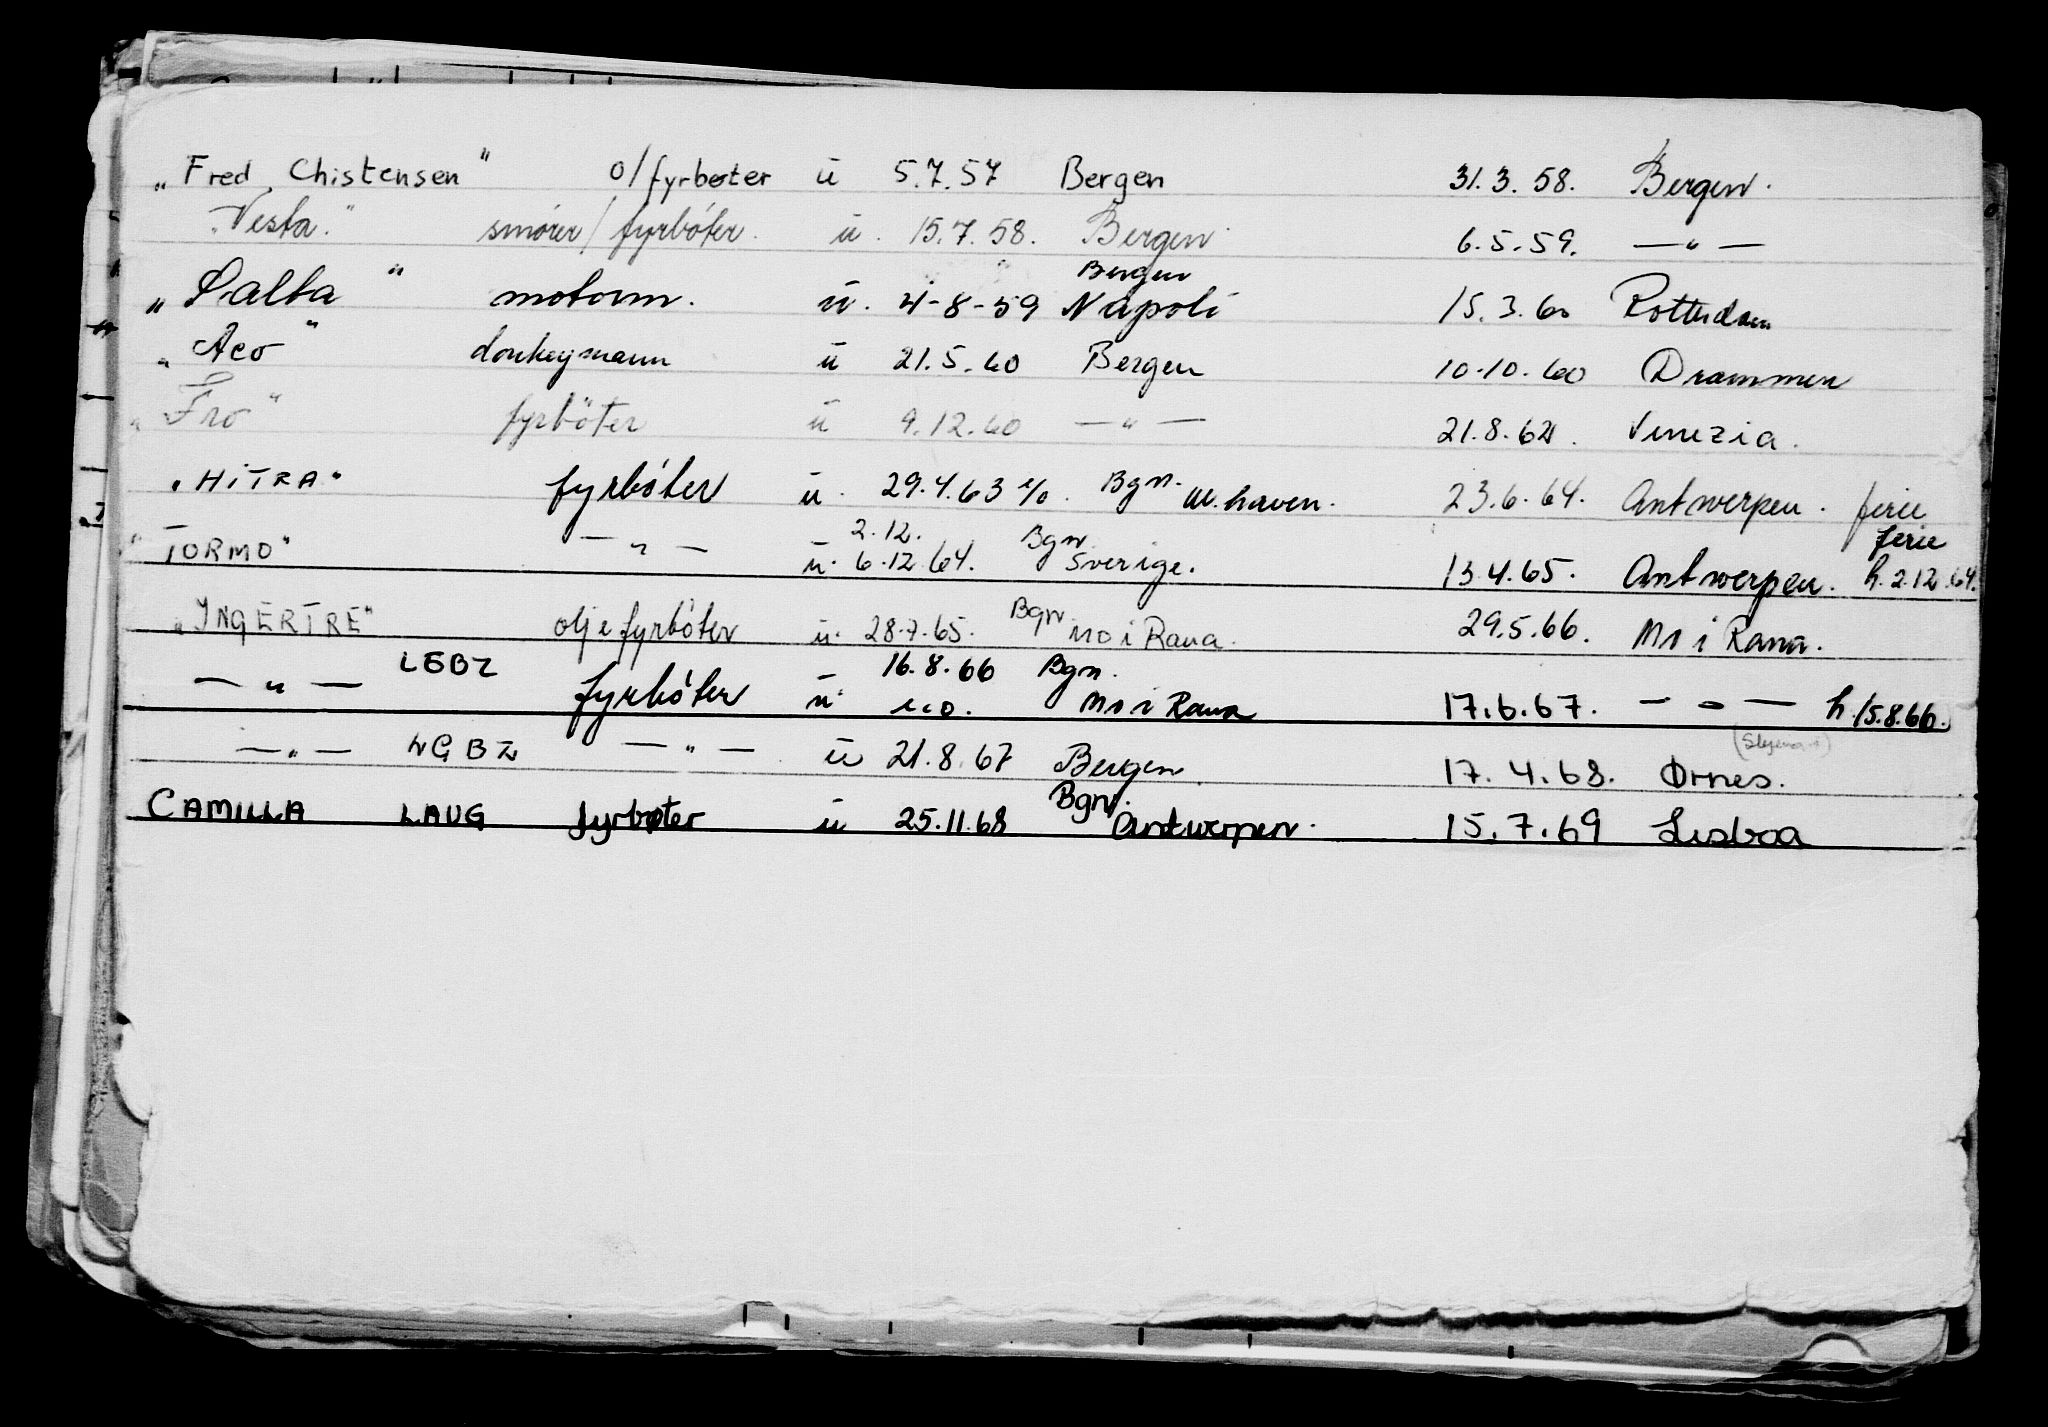 „Fred Chistensen" o/fyrbøter u 5.7.57 Bergen 31.3.58. Bergen.
„Vesta." smører/fyrbøter. u. 15.7.58. Bergen 6.5.59. —"—
Bergen
„Salta" motorm. u. 4-8-59 Napoli 15.3.60 Rotterdam
„Aco" donkeymann u 21.5.60 Bergen 10.10.60 Drammen
„Fro" fyrbøter u 9.12.60 —"— 21.8.62. Venezia.
„HITRA" fyrbøter u. 29.4.63 Bgn. W.haven. 23.6.64. Antwerpen. ferie
2.12. Bgn. ferie
"TORMO" —"— u. 6.12.64. Sverige. 13.4.65. Antwerpen. h. 2.12.64.
„INGERTRE" oljefyrbøter u. 28.7.65. Bgn. Mo i Rana. 29.5.66. Mo i Rana.
LEBZ 16.8.66 Bgn.
—"— fyrbøter u. Mo i Rana 17.6.67. —"— h.15.8.66.
—"— LGBZ —"— u 21.8.67 Bergen. 17.4.68. Ørnes.
Bgn.
CAMILLA LAUG fyrbøter u 25.11.68 Antwerpen. 15.7.69 Lisboa